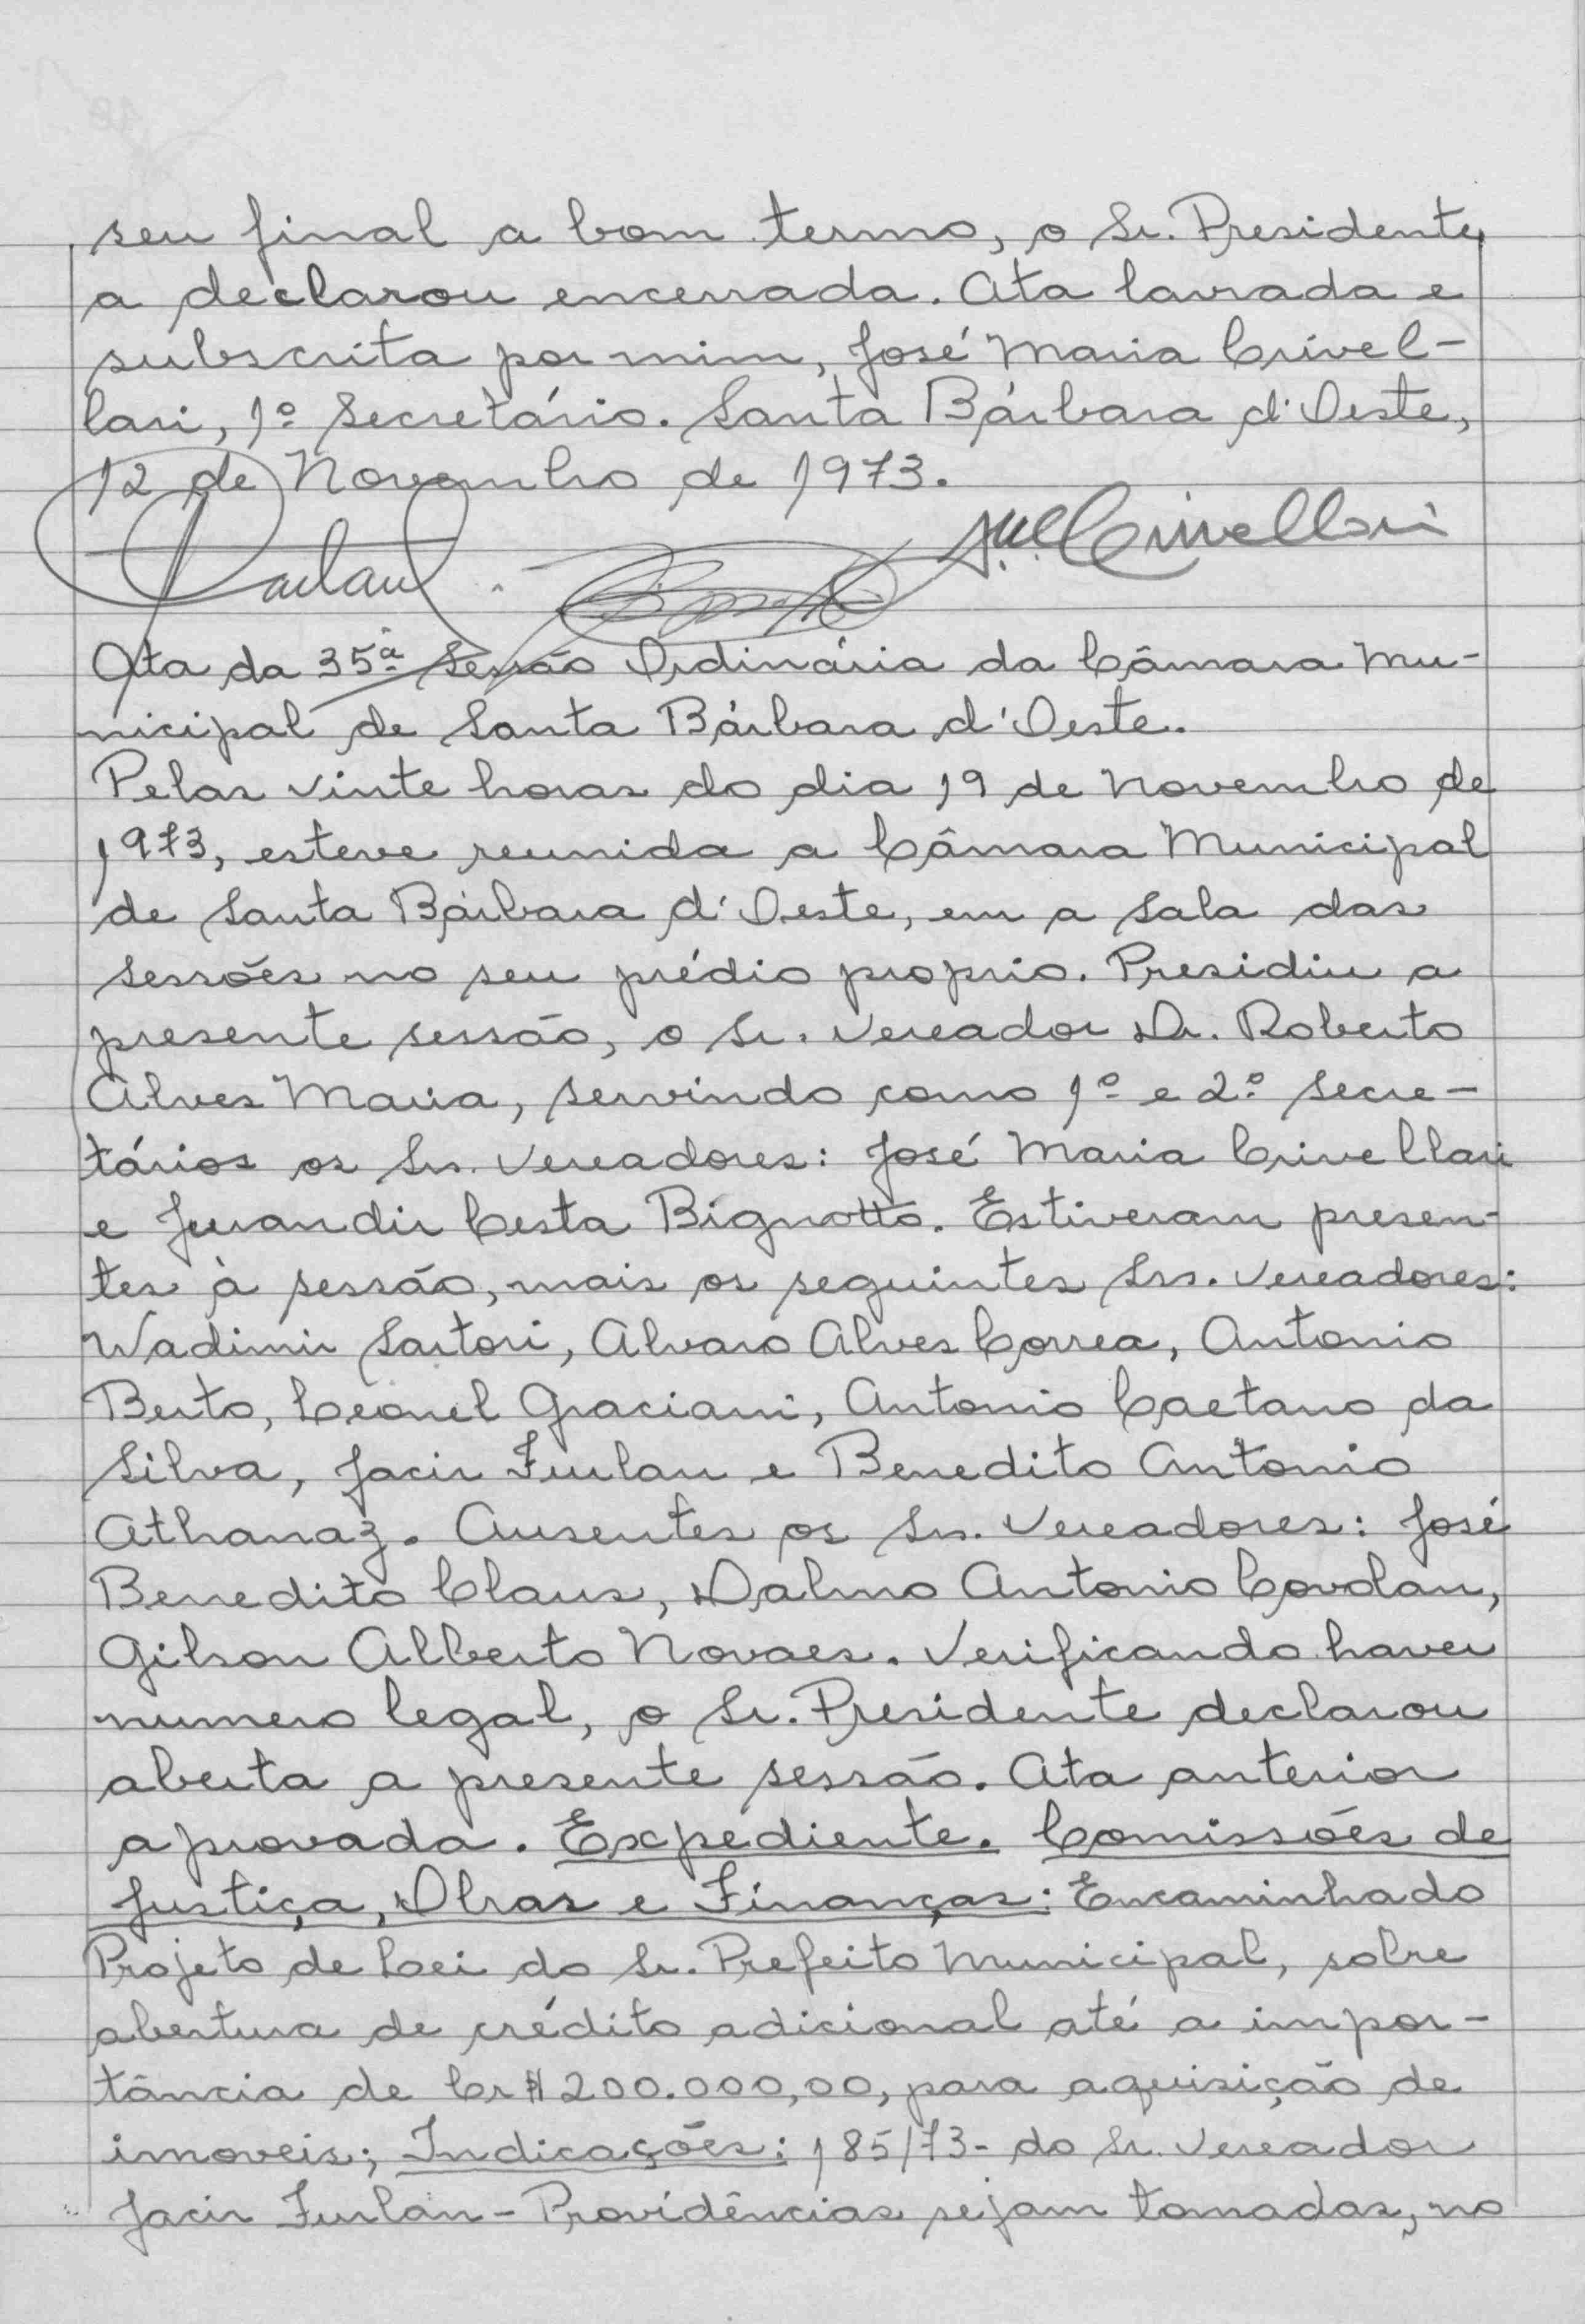 seu final a bom termo, o Sr. Presidente
a declarou encerrada. Ata lavrada e
subscrita por mim, José Maria Crivel-
lari, 1º Secretário. Santa Bárbara d'Oeste,
12 de Novembro de 1973.
J.M. Crivellari
Ata da 35ª Sessão Ordinária da Câmara Mu-
nicipal de Santa Bárbara d'Oeste.
Pelas vinte horas do dia 19 de Novembro de
1973, esteve reunida a Câmara Municipal
de Santa Bárbara d'Oeste, em a sala das
sessões no seu prédio proprio. Presidiu a
presente sessão, o Sr. Vereador Dr. Roberto
Alves Maria, servindo como 1º e 2º Secre-
tários os Srs. Vereadores: José Maria Crivellari
e Jurandir Cesta Bignotto. Estiveram presen-
tes à sessão, mais os seguintes Srs. Vereadores:
Wadimir Sartori, Alvaro Alves Correa, Antonio
Berto, Leonel Graciani, Antonio Caetano da
Silva, Jacir Furlan e Benedito Antonio
Athanaz. Ausentes os Srs. Vereadores: José
Benedito Claus, Dalmo Antonio Covolan,
Gilson Alberto Novaes. Verificando haver
numero legal, o Sr. Presidente declarou
aberta a presente sessão. Ata anterior
aprovada. Expediente. Comissões de
Justiça, Obras e Finanças: Encaminhado
Projeto de Lei do Sr. Prefeito Municipal, sobre
abertura de crédito adicional até a impor-
tância de Cr$ 200.000,00, para aquisição de
imoveis; Indicações: 185/73- do Sr. Vereador
Jacir Furlan - Providências sejam tomadas, no